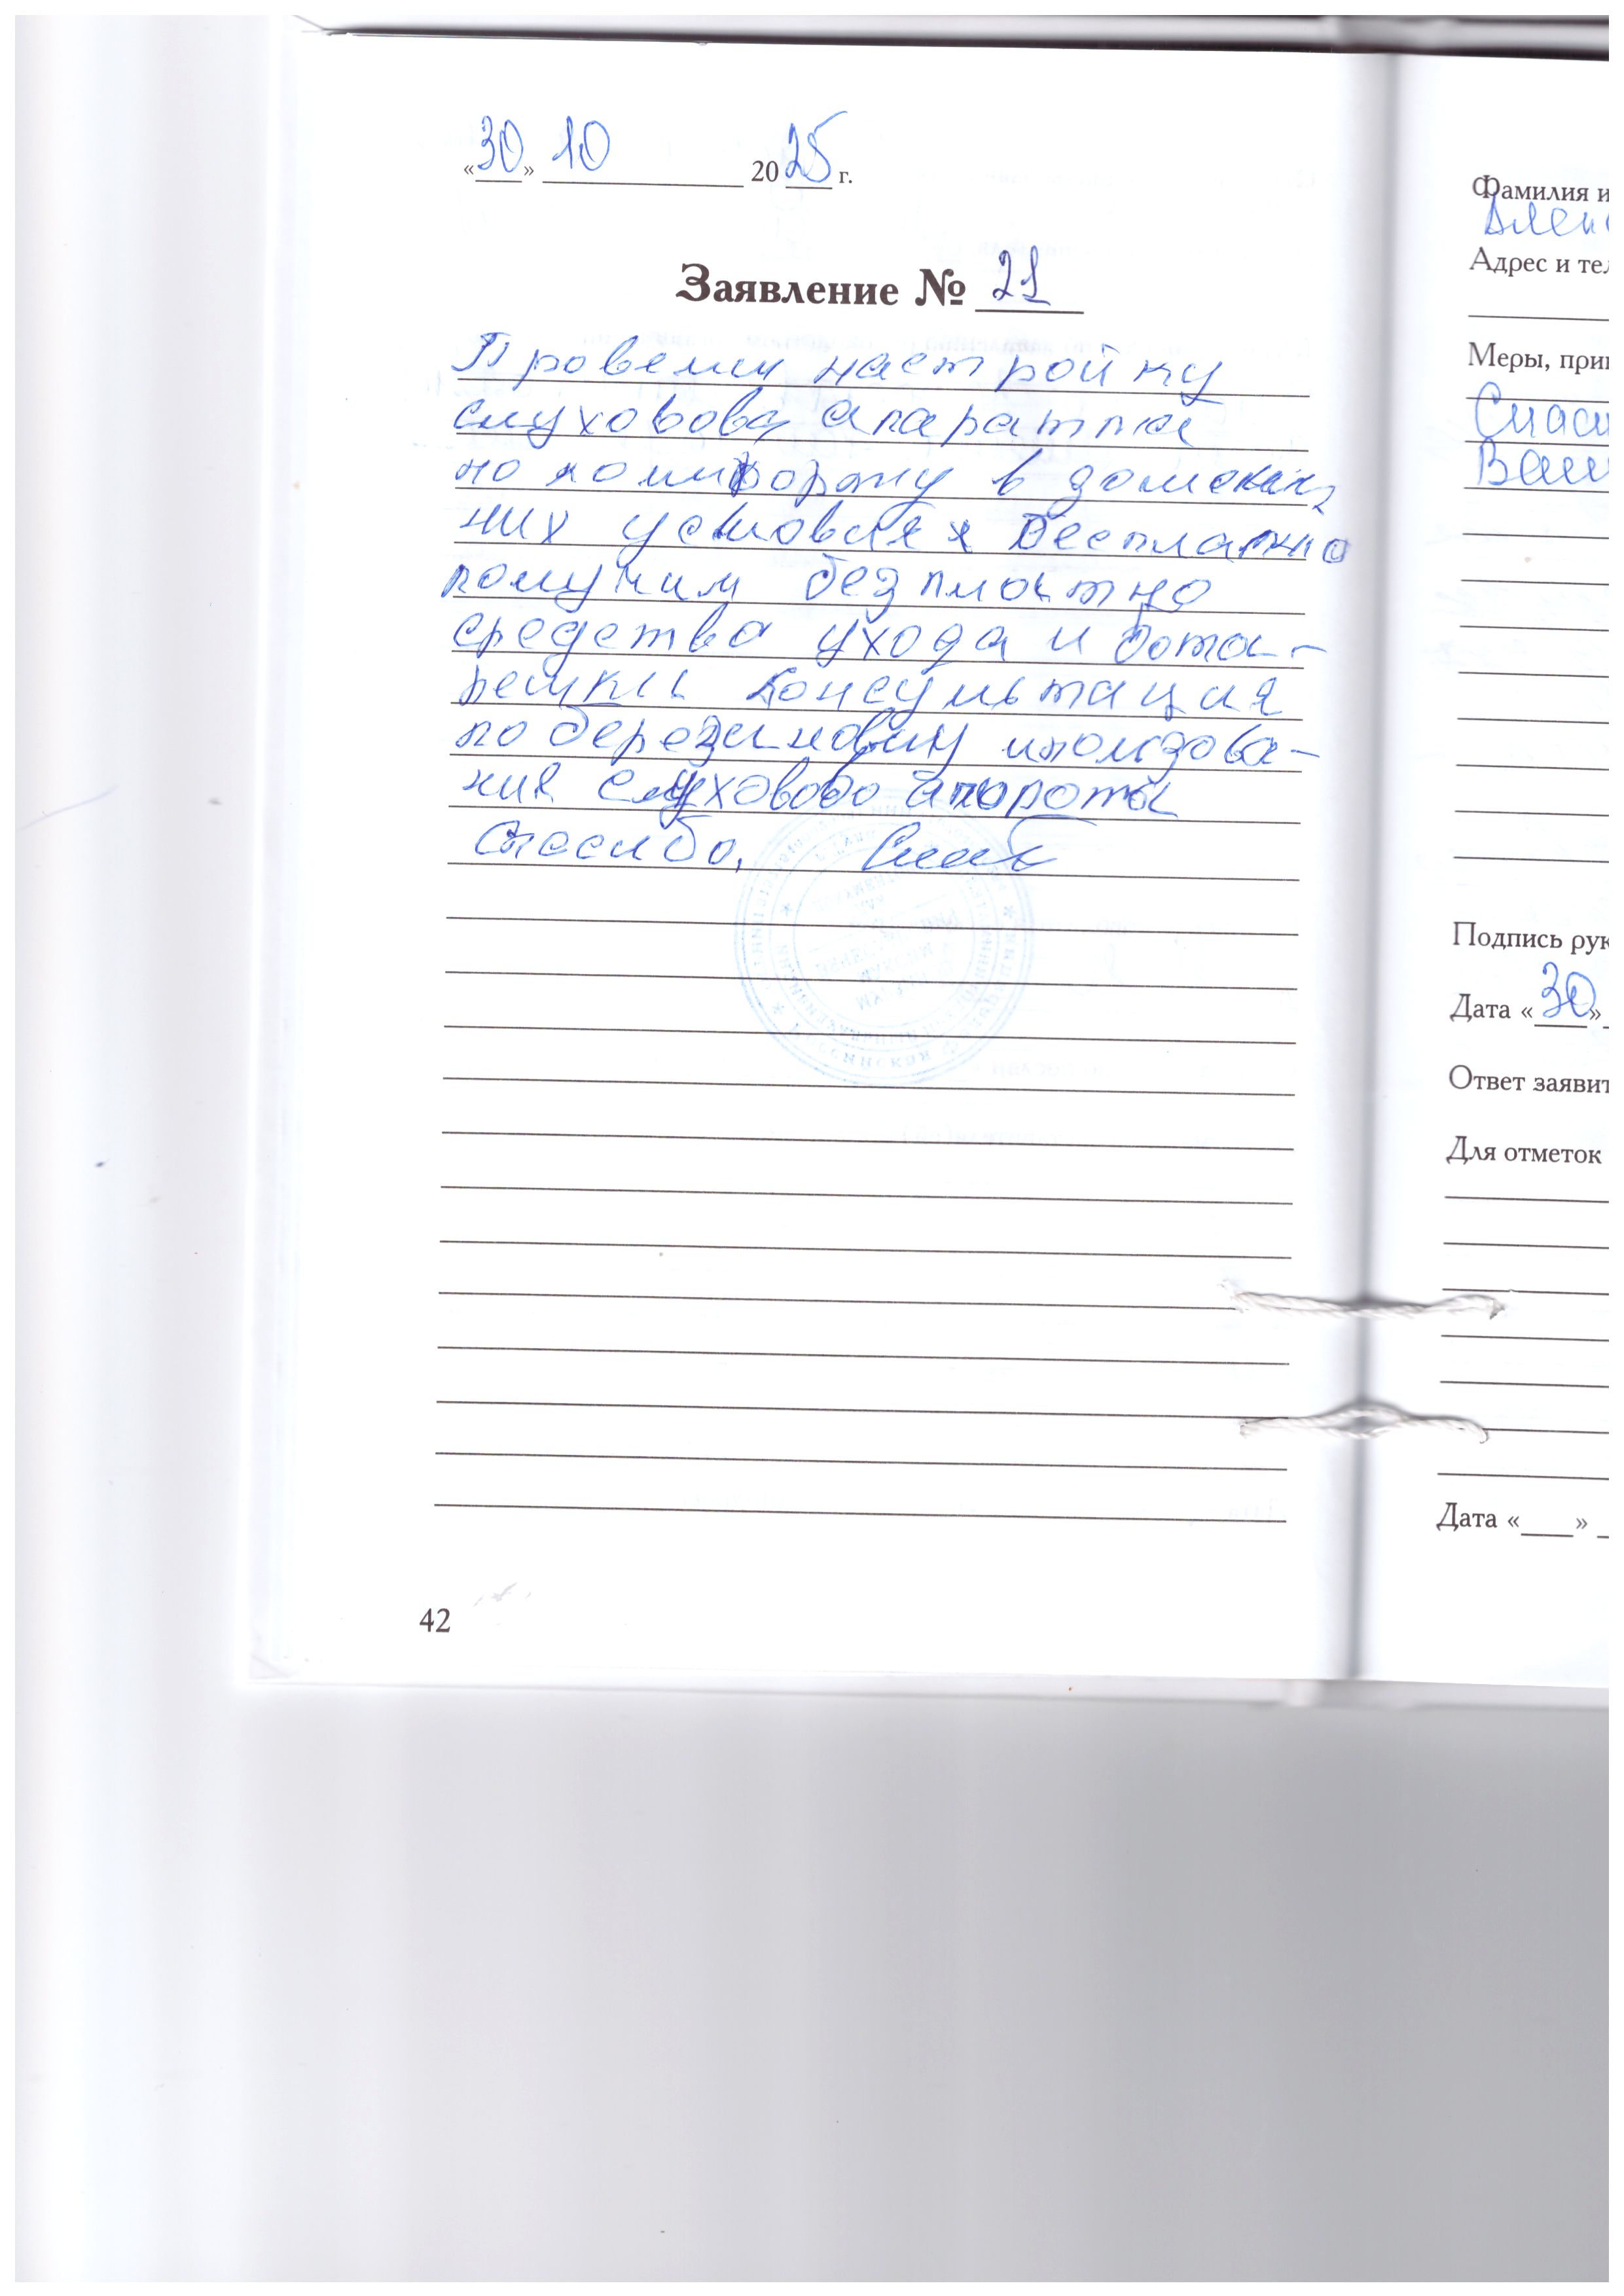 «30» 10 2025 г.
Заявление № 21
Провели настройку
слуховова апарата
по комфорту в домашних
них условиях бесплатно
получил безплатно
средства ухода и бата-
рейки консультация
по бережиному ипользова-
ния слухового апората
Спасибо.
42
Фамилия и
Алекс
Адрес и тел
Меры, при
Спаси
Ваш
Подпись рук
Дата «30»
Ответ заявит
Для отметок
Дата «    »